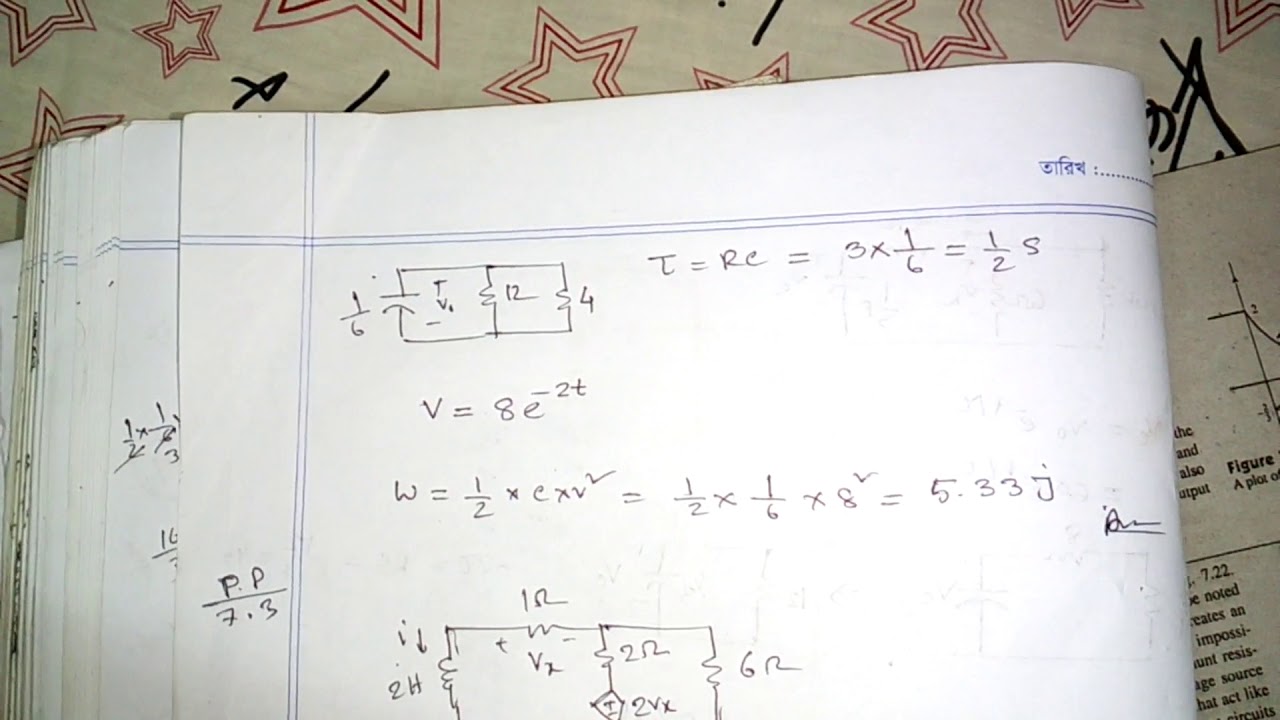 তারিখ :..........
τ = RC = 3 × 1/6 = 1/2 S
1/6
+ V₀ -
12
4
V = 8e^-2t
W = 1/2 × c × v² = 1/2 × 1/6 × 8² = 5.33 j
Ans
P.P 7.3
1Ω
i ↓
+ Vx -
2H
2Ω
6Ω
2Vx
1/2 ×
the
and
also
utput
Figure
A plot o
2
7.22.
be noted
reates an
impossi-
unt resis-
age source
hat act like
circuits